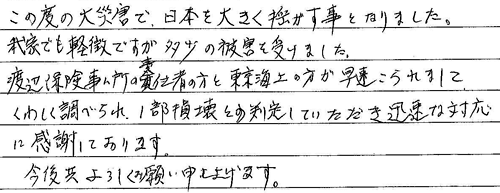 この度の大災害で、日本を大きく揺がす事となりました。
我家でも軽微ですが多少の被害を受けました。
渡辺保険事ム所の責任者の方と東京海上の方が早速こられまして
くわしく調べられ、1部損壊との判定していただき迅速な対応
に感謝しております。
今後共よろしくお願い申し上げます。